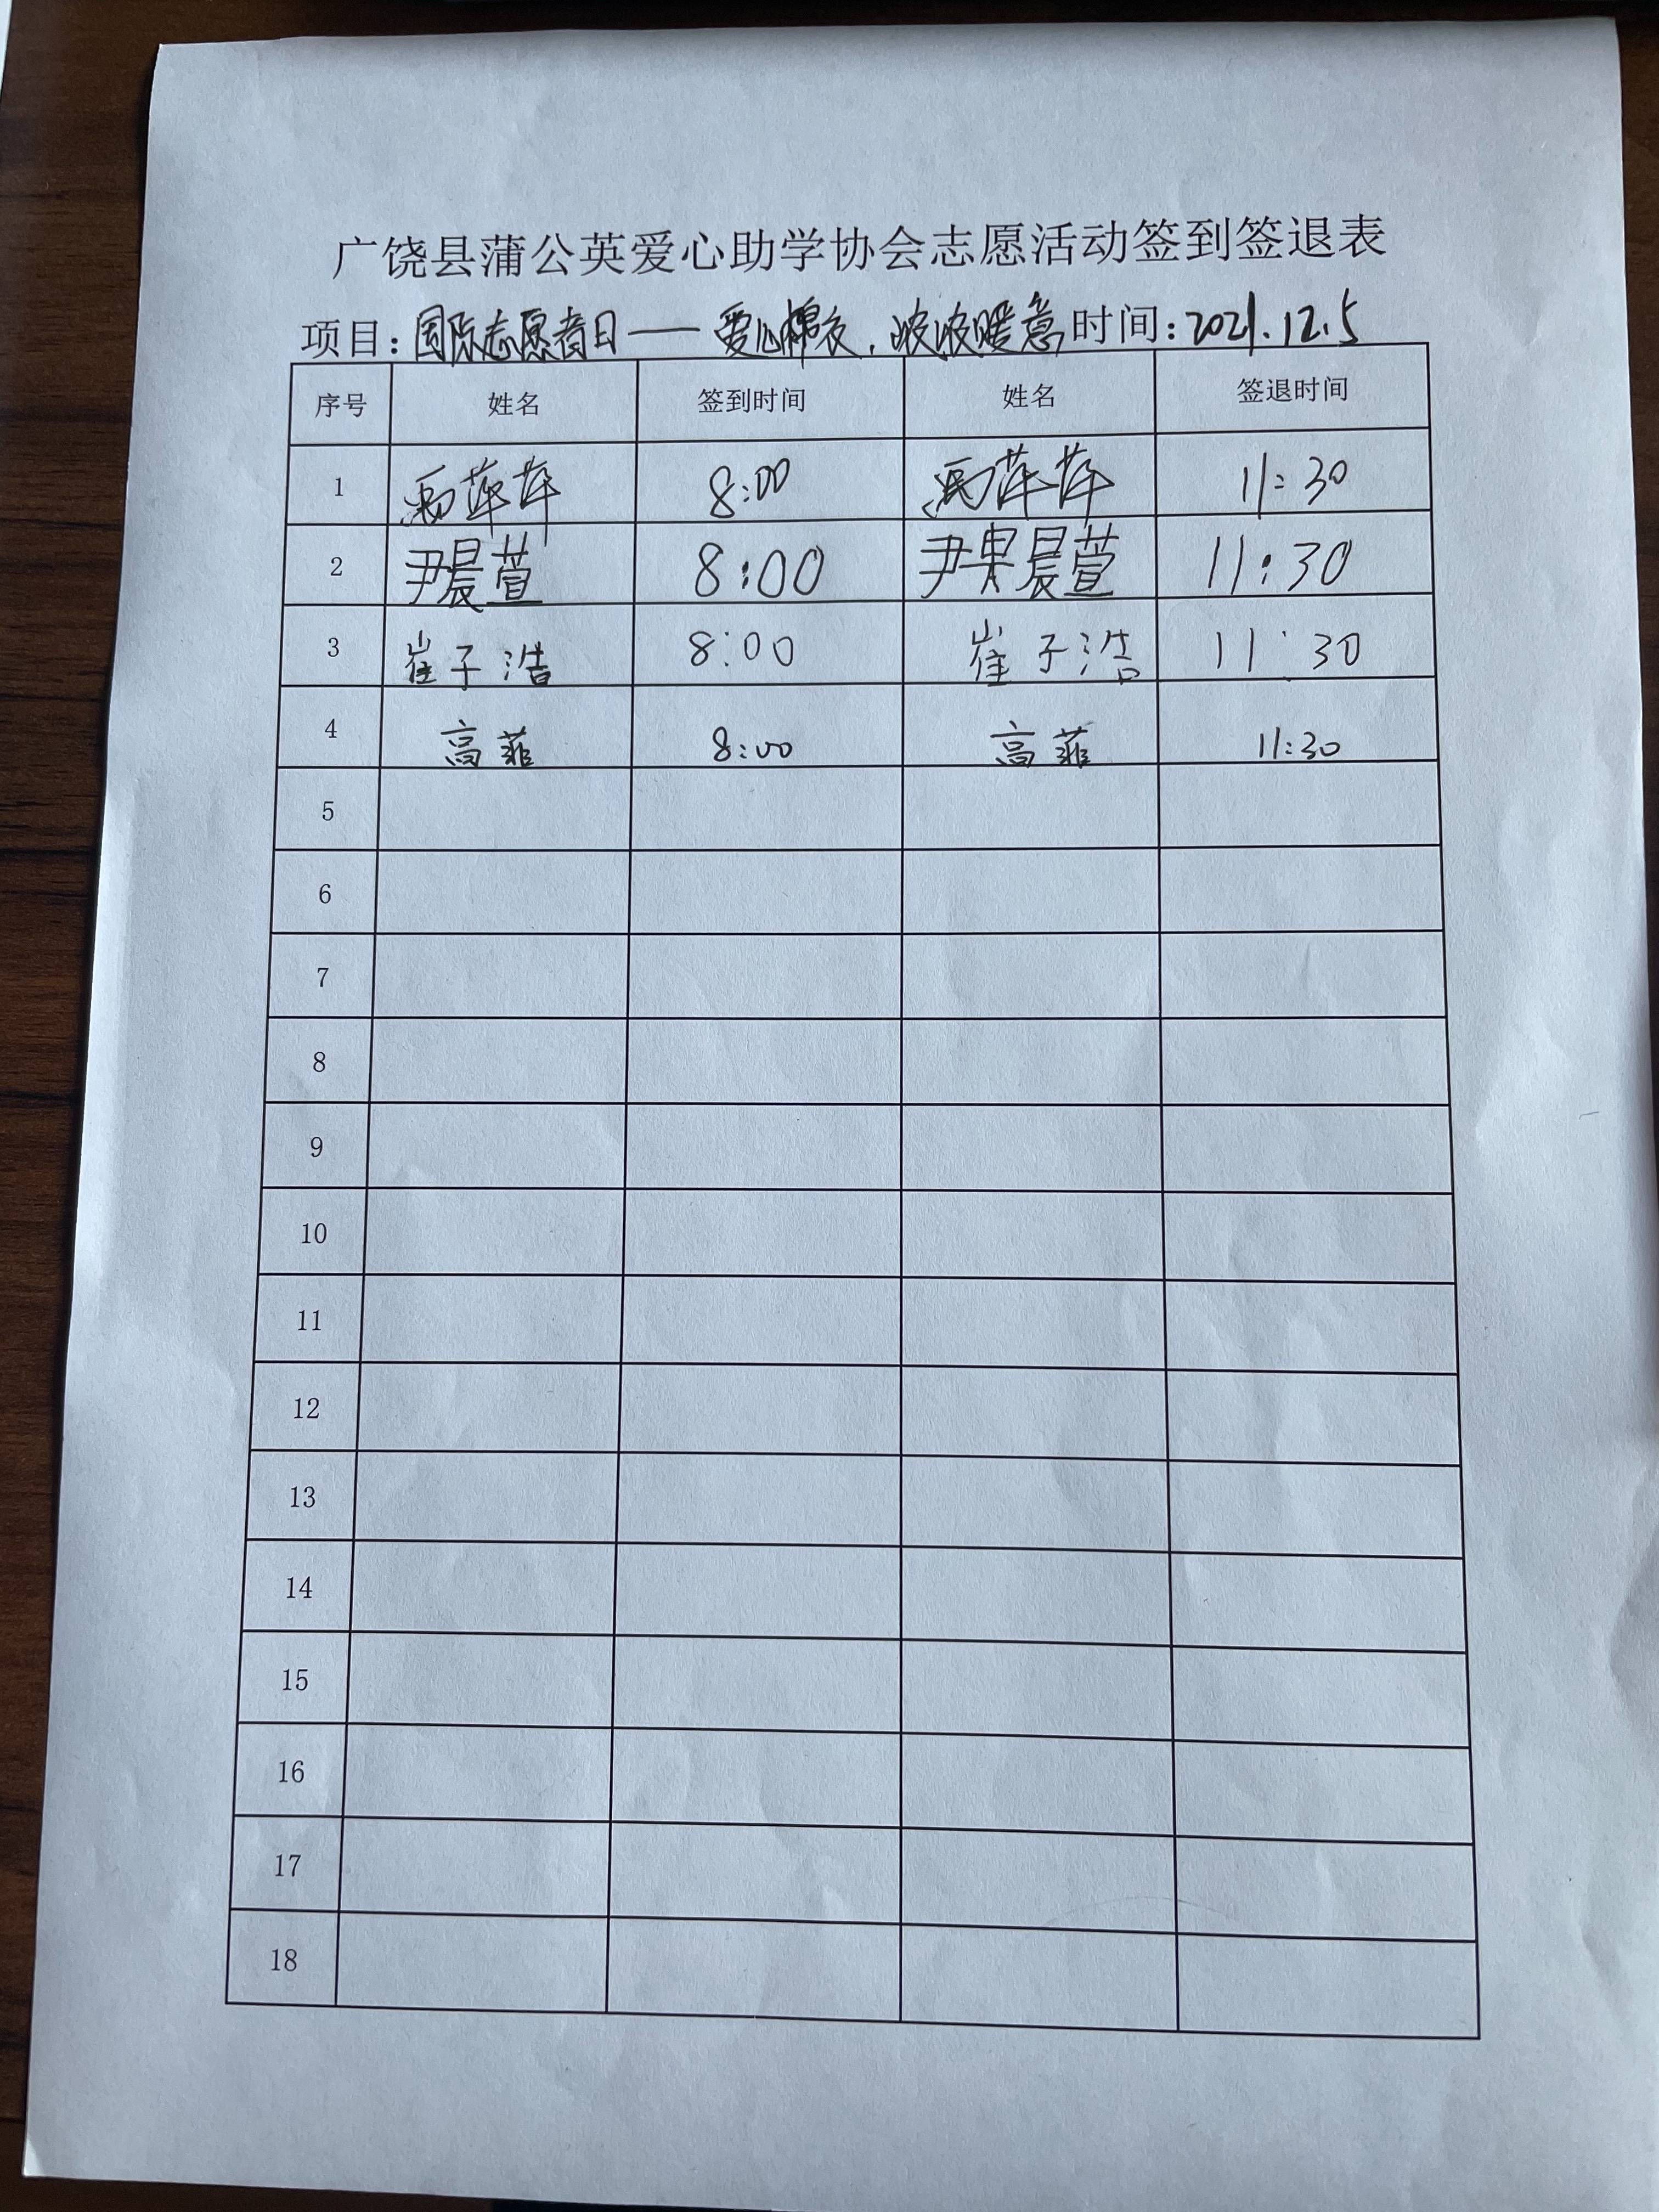 广饶县蒲公英爱心助学协会志愿活动签到签退表
项目：国际志愿者日——爱心棉衣，浓浓暖意 时间：2021.12.5
序号 姓名 签到时间 姓名 签退时间
1 萍萍 8:00 萍萍 11:30
2 尹晨萱 8:00 尹果晨萱 11:30
3 崔子浩 8:00 崔子浩 11:30
4 高菲 8:00 高菲 11:30
5
6
7
8
9
10
11
12
13
14
15
16
17
18